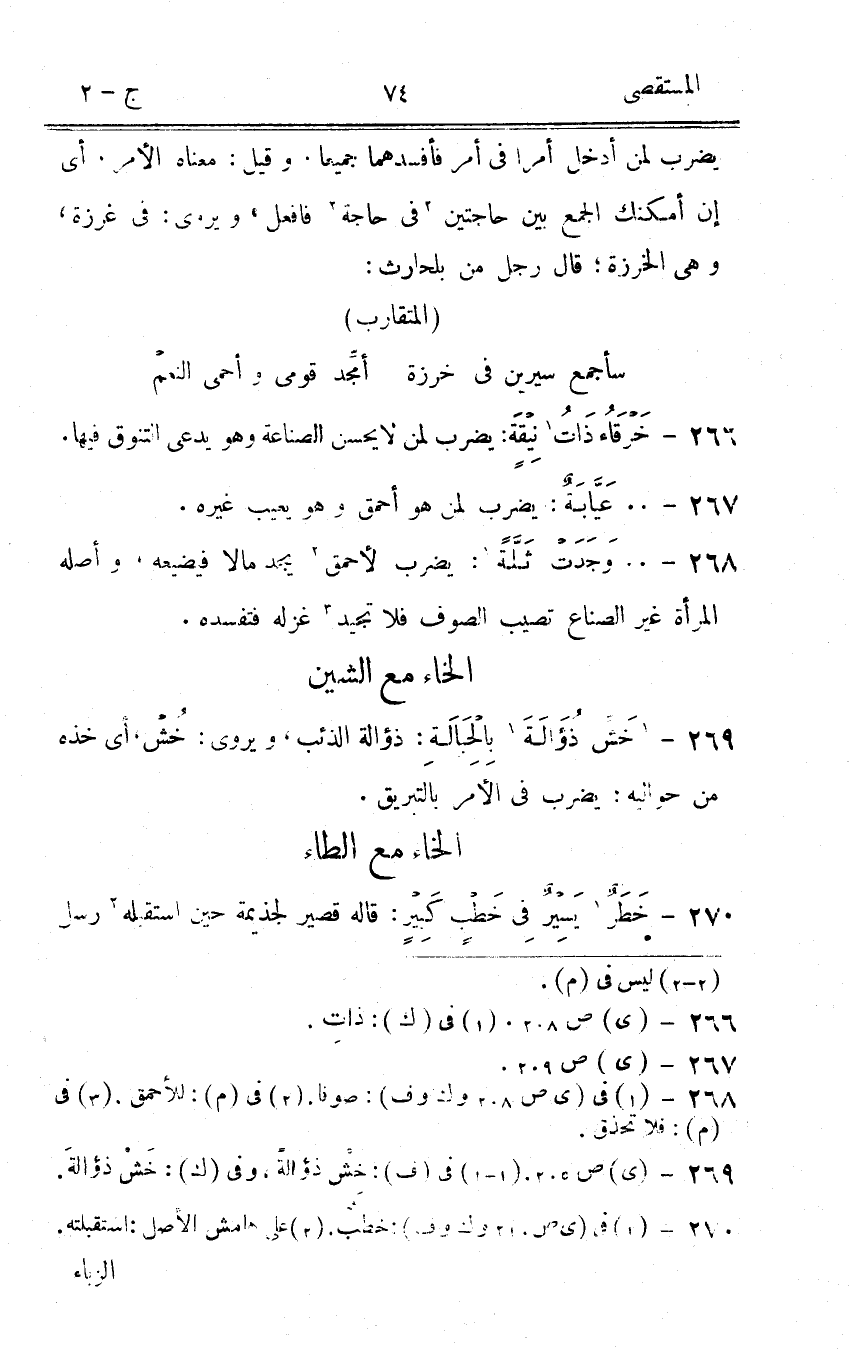 المستقصى ٧٤ ج - ٢
يضرب لمن أدخل أمرا فى أمر فأفسدهما جميعا . و قيل : معناه الأمر . أى
إن أمكنك الجمع بين حاجتين ٢فى حاجة٢ فافعل ، و يروى : فى غرزة ،
و هى الخرزة ؛ قال رجل من بلحارث :
(المتقارب)
سأجمع سيرين فى خرزة أمجِّد قومى و أحمى النعمْ
٢٦٦ - خَرْقَاءُ ذَاتُ١ نِيْقَةٍ: يضرب لمن لايحسن الصناعة وهو يدعى التنوق فيها.
٢٦٧ - .. عَيَّابَةٌ : يضرب لمن هو أحمق و هو يعيب غيره .
٢٦٨ - .. وَجَدَتْ ثَلَّةً١ : يضرب لأحمق٢ يجد مالا فيضيعه ، و أصله
المرأة غير الصناع تصيب الصوف فلا تجيد٣ غزله فتفسده .
الخاء مع الشين
٢٦٩ - ١خَشِّ ذُؤَالَةَ١ بِالْحِبَالَةِ : ذؤالة الذئب ، و يروى : خُشْ ، أى خذه
من حواليه : يضرب فى الأمر بالتبريق .
الخاء مع الطاء
٢٧٠ - خَطَرٌ١ يَسِيْرٌ فِى خَطْبٍ كَبِيْرٍ : قاله قصير لجذيمة حين استقبله٢ رسل
(٢-٢) ليس فى (م) .
٢٦٦ - (ى) ص ٢٠٨ . (١) فى (ك) : ذاتِ .
٢٦٧ - (ى) ص ٢٠٩ .
٢٦٨ - (١) فى (ى ص ٢٠٨ و ك و ف) : صوفا . (٢) فى (م) : للأحمق . (٣) فى
(م) : فلا تحذق .
٢٦٩ - (ى) ص ٢٠٥ . (١-١) فى (ف) : خشْ ذؤالةً ، وفى (ك) : خَشْ ذؤالةَ .
٢٧٠ - (١) فى (ى ص ٢١٠ و ك و ف) : خطبٌ . (٢) على هامش الأصل : استقبلته .
الزباء